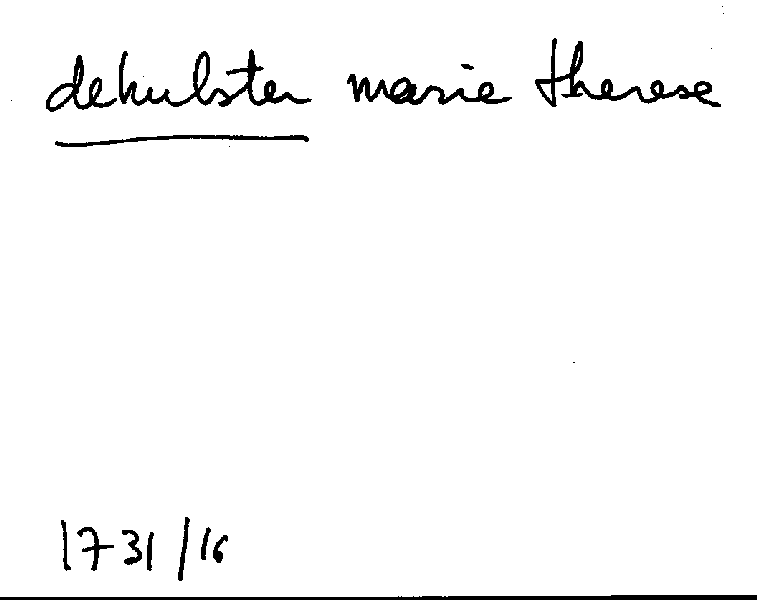 dehulster marie therese
1731/16